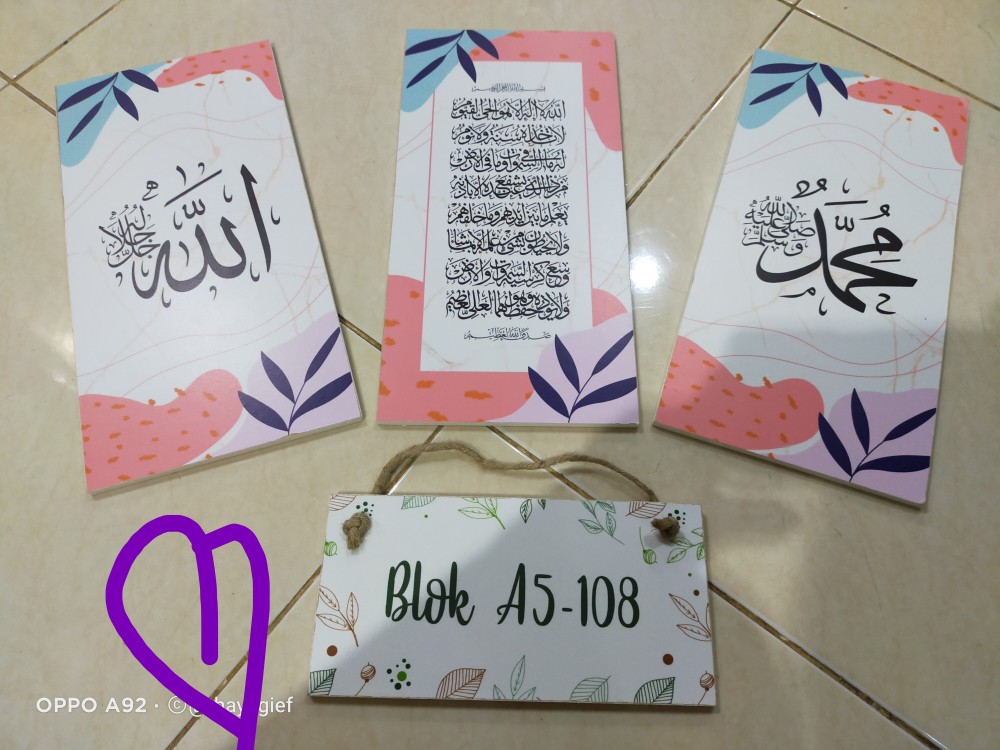 الله
جل جلاله
بسم الله الرحمن الرحيم
الله لا إله إلا هو الحي القيوم
لا تأخذه سنة ولا نوم
له ما في السموات وما في الأرض
من ذا الذي يشفع عنده إلا بإذنه
يعلم ما بين أيديهم وما خلفهم
ولا يحيطون بشيء من علمه إلا بما شاء
وسع كرسيه السموات والأرض
ولا يؤده حفظهما وهو العلي العظيم
صدق الله العظيم
محمد
صلى الله عليه وسلم
Blok A5-108
OPPO A92 · ©